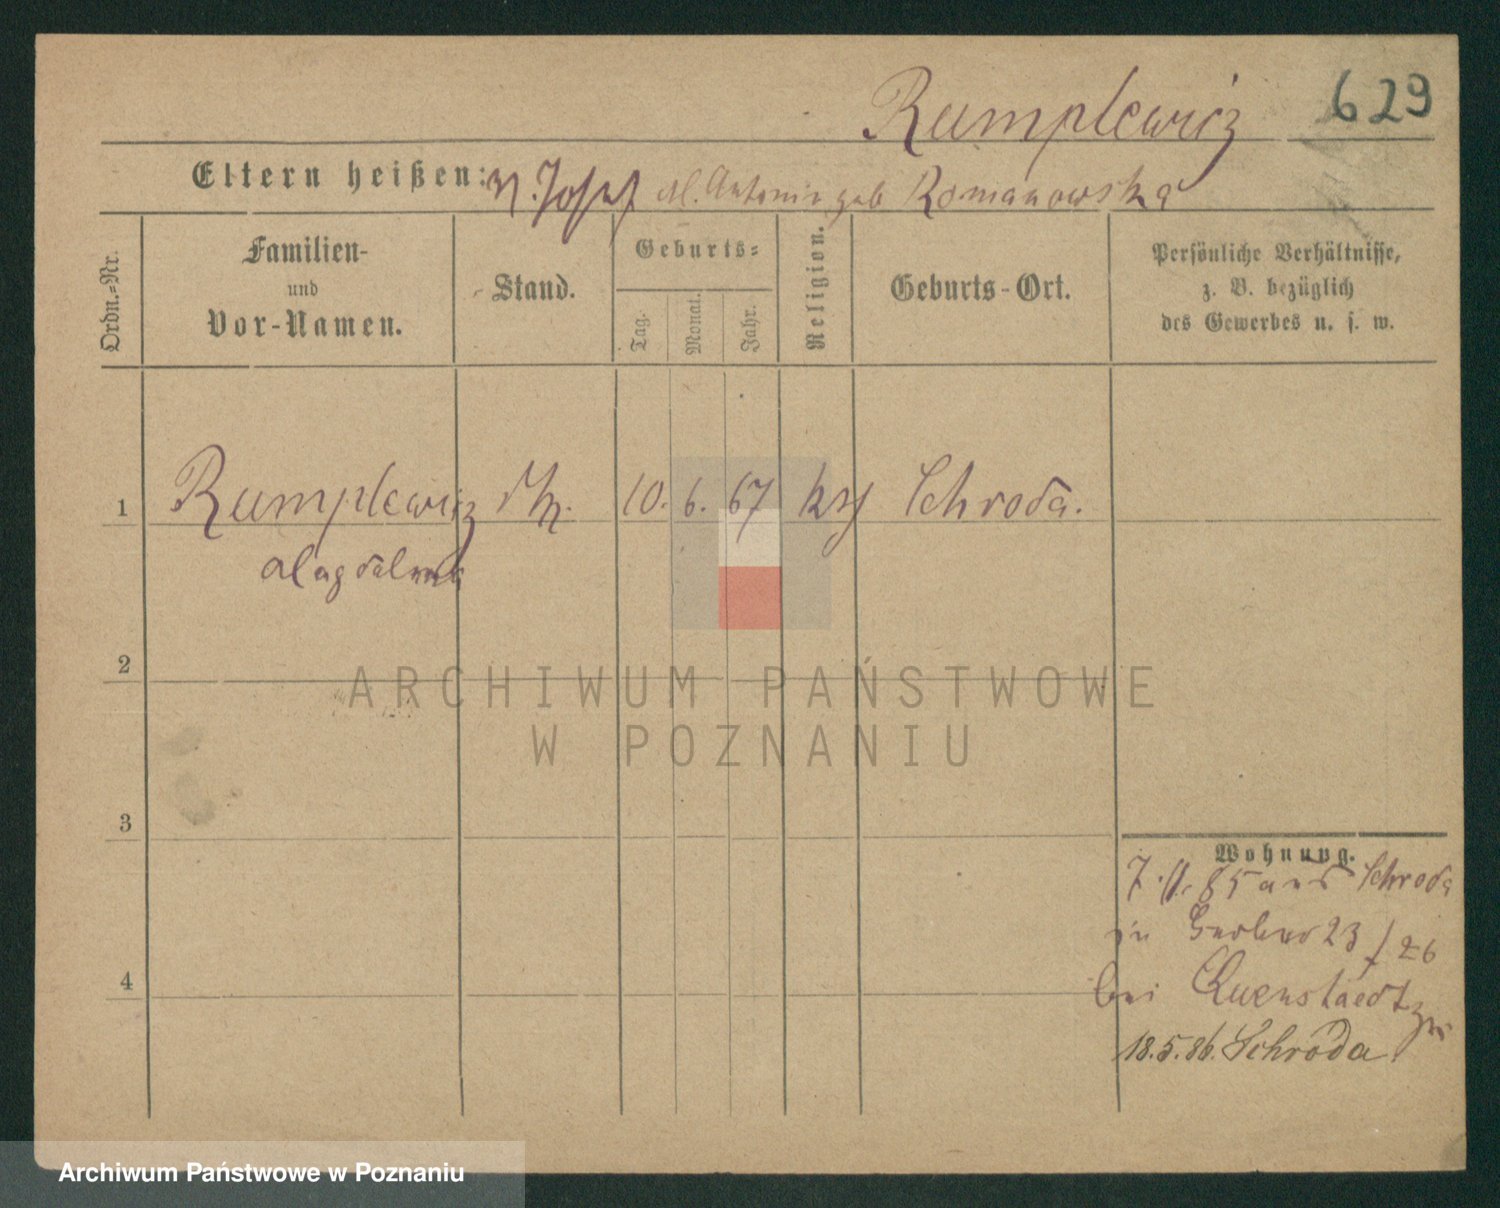 Rumplewicz 629
Eltern heißen: V. Josef M. Antonia geb Romanowska
Ordn.-Nr.
Familien-
und
Vor-Namen.
Stand.
Geburts-
Tag.
Monat.
Jahr.
Religion.
Geburts-Ort.
Persönliche Verhältnisse,
z. B. bezüglich
des Gewerbes u. s. w.
1 Rumplewicz 10. 6. 67 Schroda.
Magdalena
2
3
4
Wohnung.
7. 85 aus Schroda
in Gerber 23/26
bei Quenstaedt
18.5.86. Schroda
ARCHIWUM PAŃSTWOWE
W POZNANIU
Archiwum Państwowe w Poznaniu